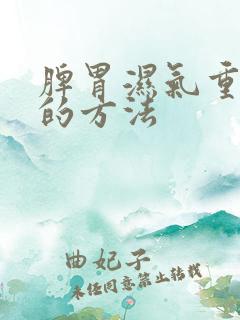 脾胃濕氣重
的方法
曲妃子
未经同意禁止转载